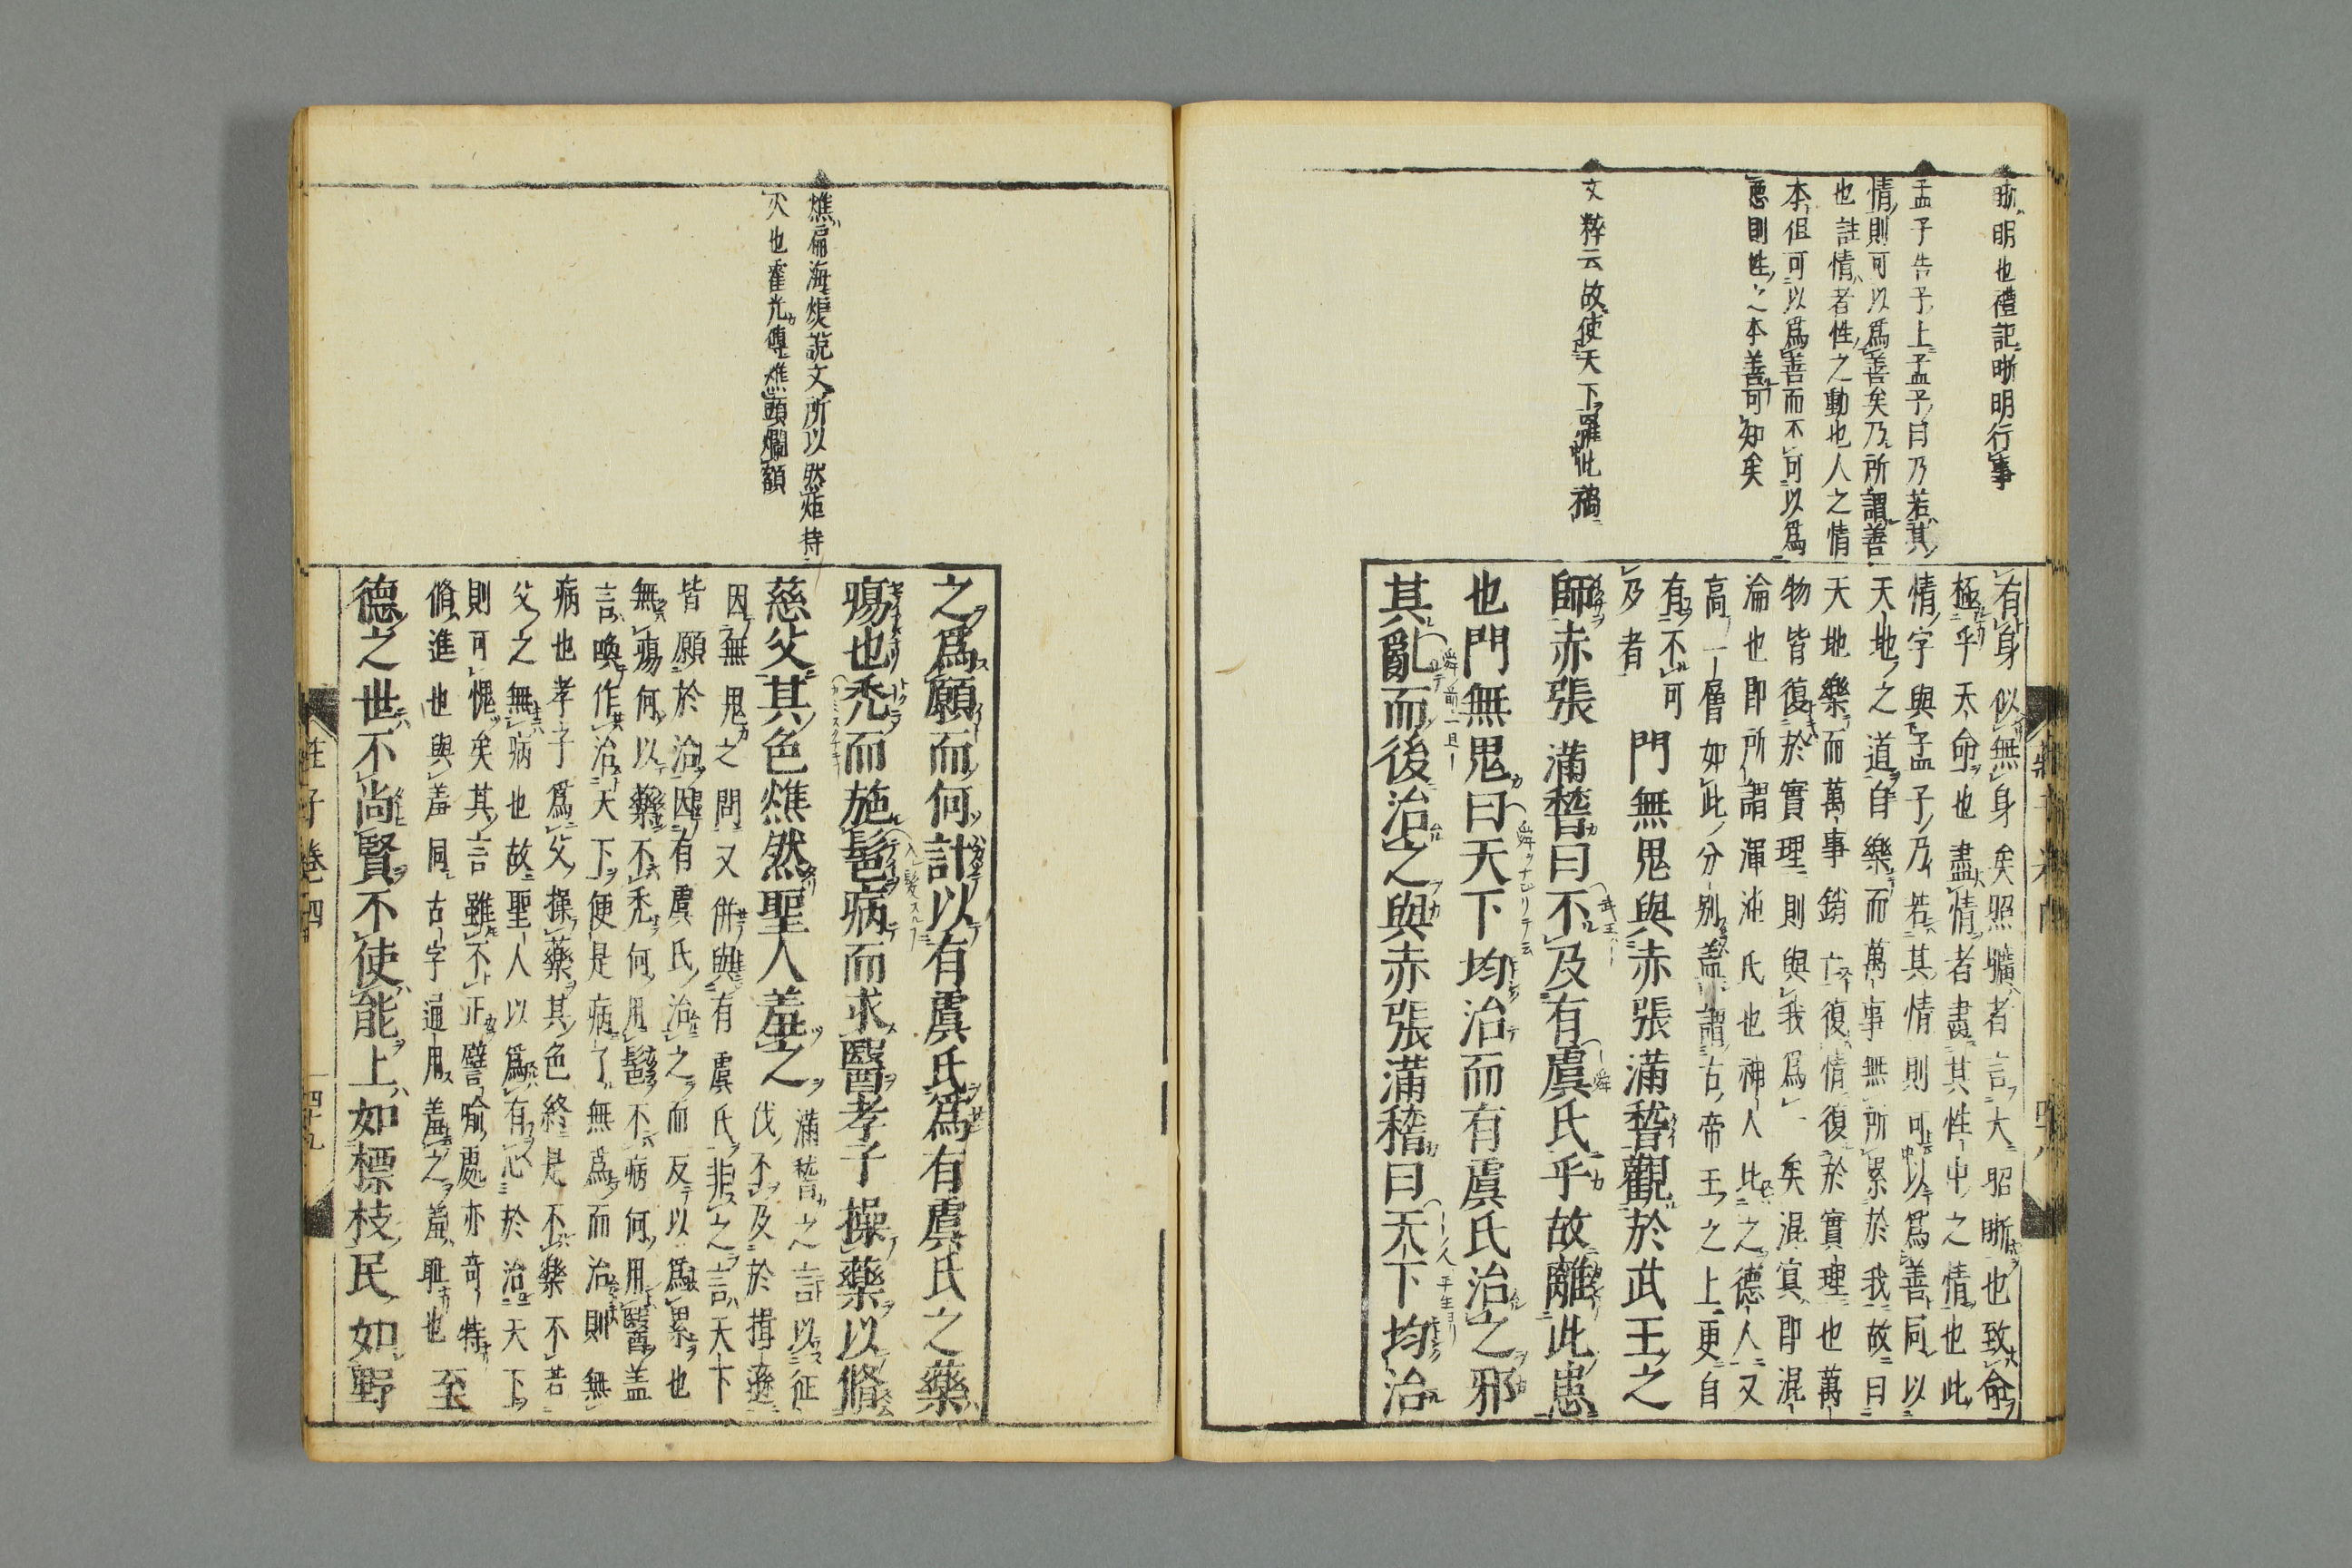 晣明也禮記晣明行事
孟子告子上孟子曰乃若其
情則可以爲善矣乃所謂善
也註情者性之動也人之情
本但可以爲善而不可以爲
惡則性之本善可知矣
文粹云故使天下罹此禍
有身似無身矣照曠者言大昭晣也致命
極乎天命也盡情者盡其性中之情也此
情字與孟子乃若其情則可以爲善同以
天地之道自樂而萬事無所累於我故曰
天地樂而萬事銷亡復情復於實理也萬
物皆復於實理則與我爲一矣混冥即混
淪也即所謂渾沌氏也神人比之德人又
高一層如此分别盖謂古帝王之上更自
有不可
及者
門無鬼與赤張滿稽觀於武王之
師赤張滿稽曰不及有虞氏乎故離此患
也門無鬼曰天下均治而有虞氏治之邪
其亂而後治之與赤張滿稽曰天下均治
燋扁海煗說文所以然炬持
火也霍光傳燋頭爛額
之爲願而何計以有虞氏爲有虞氏之藥
瘍也禿而施髢病而求醫孝子操藥以脩
慈父其色燋然聖人羞之
滿稽之言以征
伐不及於揖遜
因無鬼之問又併與有虞氏非之言天下
皆願於治因有虞氏治之而反以爲累也
無瘍何以藥不禿何用髢不病何用醫盖
言喚作治天下便是病了無爲而治則無
病也孝子爲父操藥其色終是不樂不若
父之無病也故聖人以爲有心於治天下
則可愧矣其言雖不正譬喻處亦奇特
脩進也與羞同古字通用羞之羞耻也
至
德之世不尚賢不使能上如標枝民如野
莊子卷四
四十九